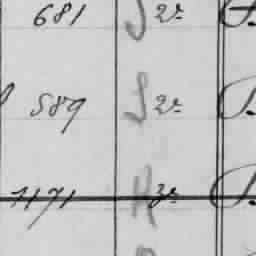 681 S 2e
589 S 2e
1171 R 3e